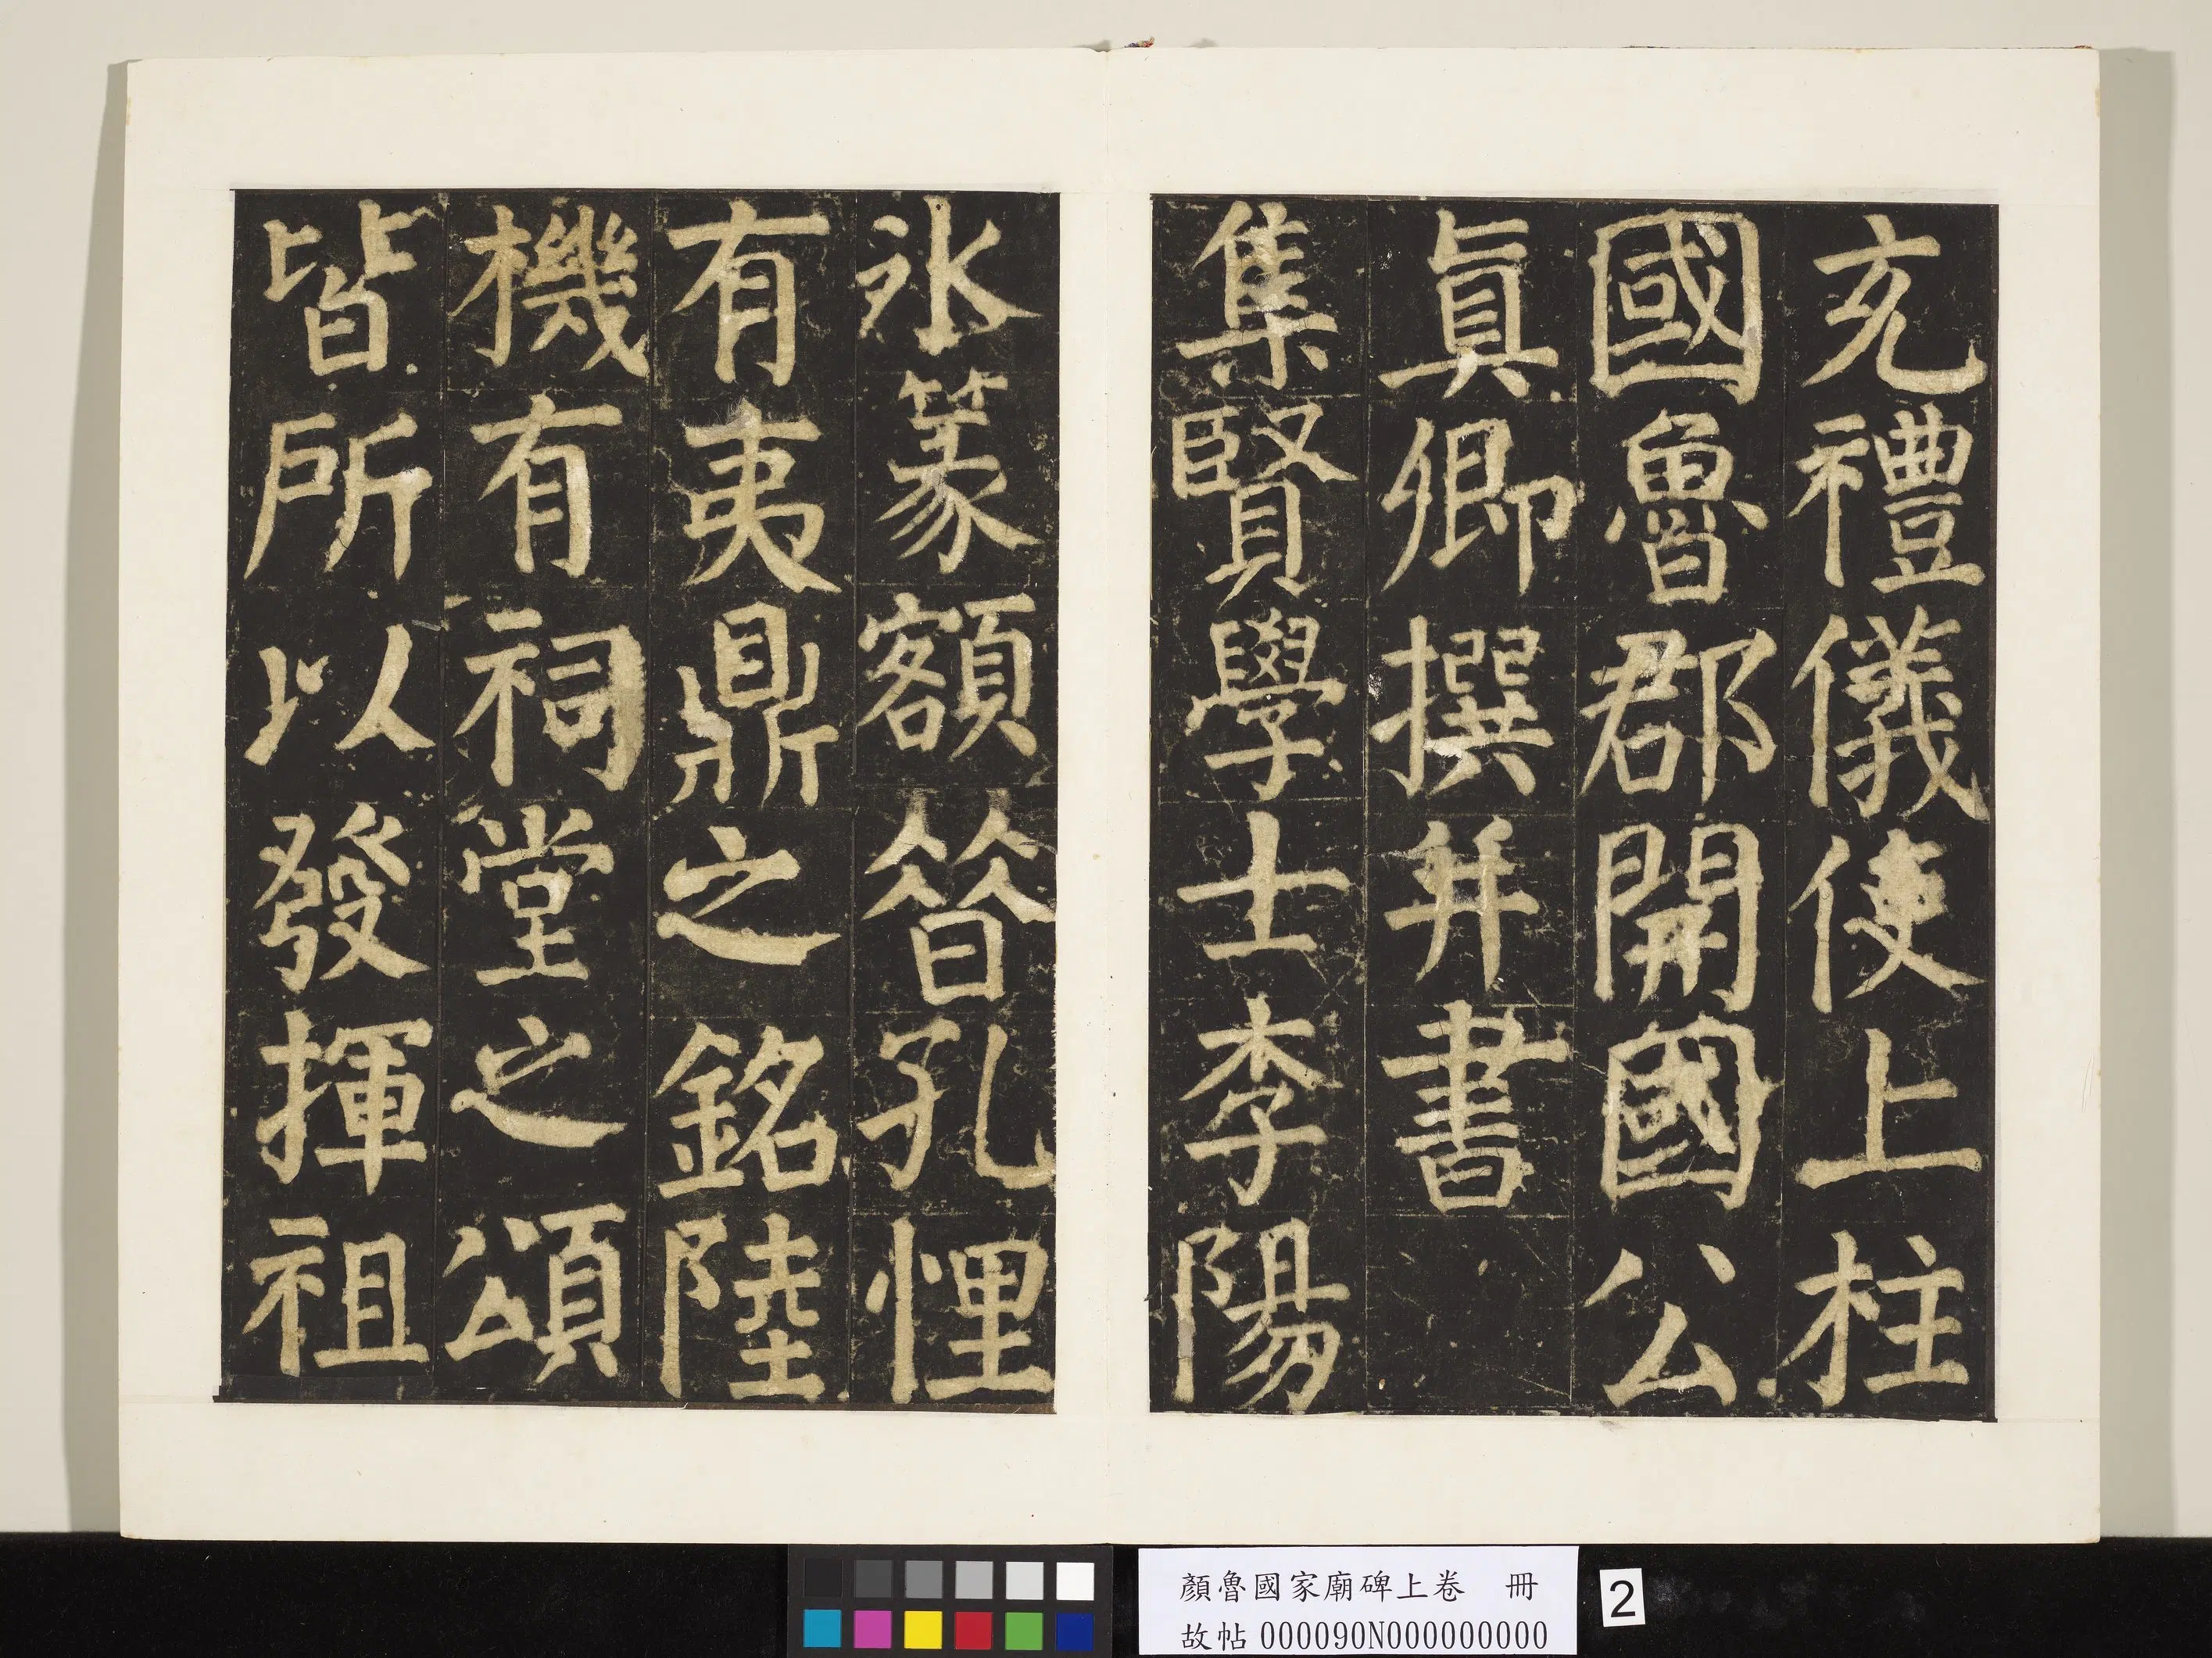 充禮儀使上柱
國魯郡開國公
真卿撰并書
集賢學士李陽
氷篆額晉孔悝
有夷鼎之銘陸
機有祠堂之頌
皆所以發揮祖
顏魯國家廟碑上卷 冊
故帖 000090N000000000
2